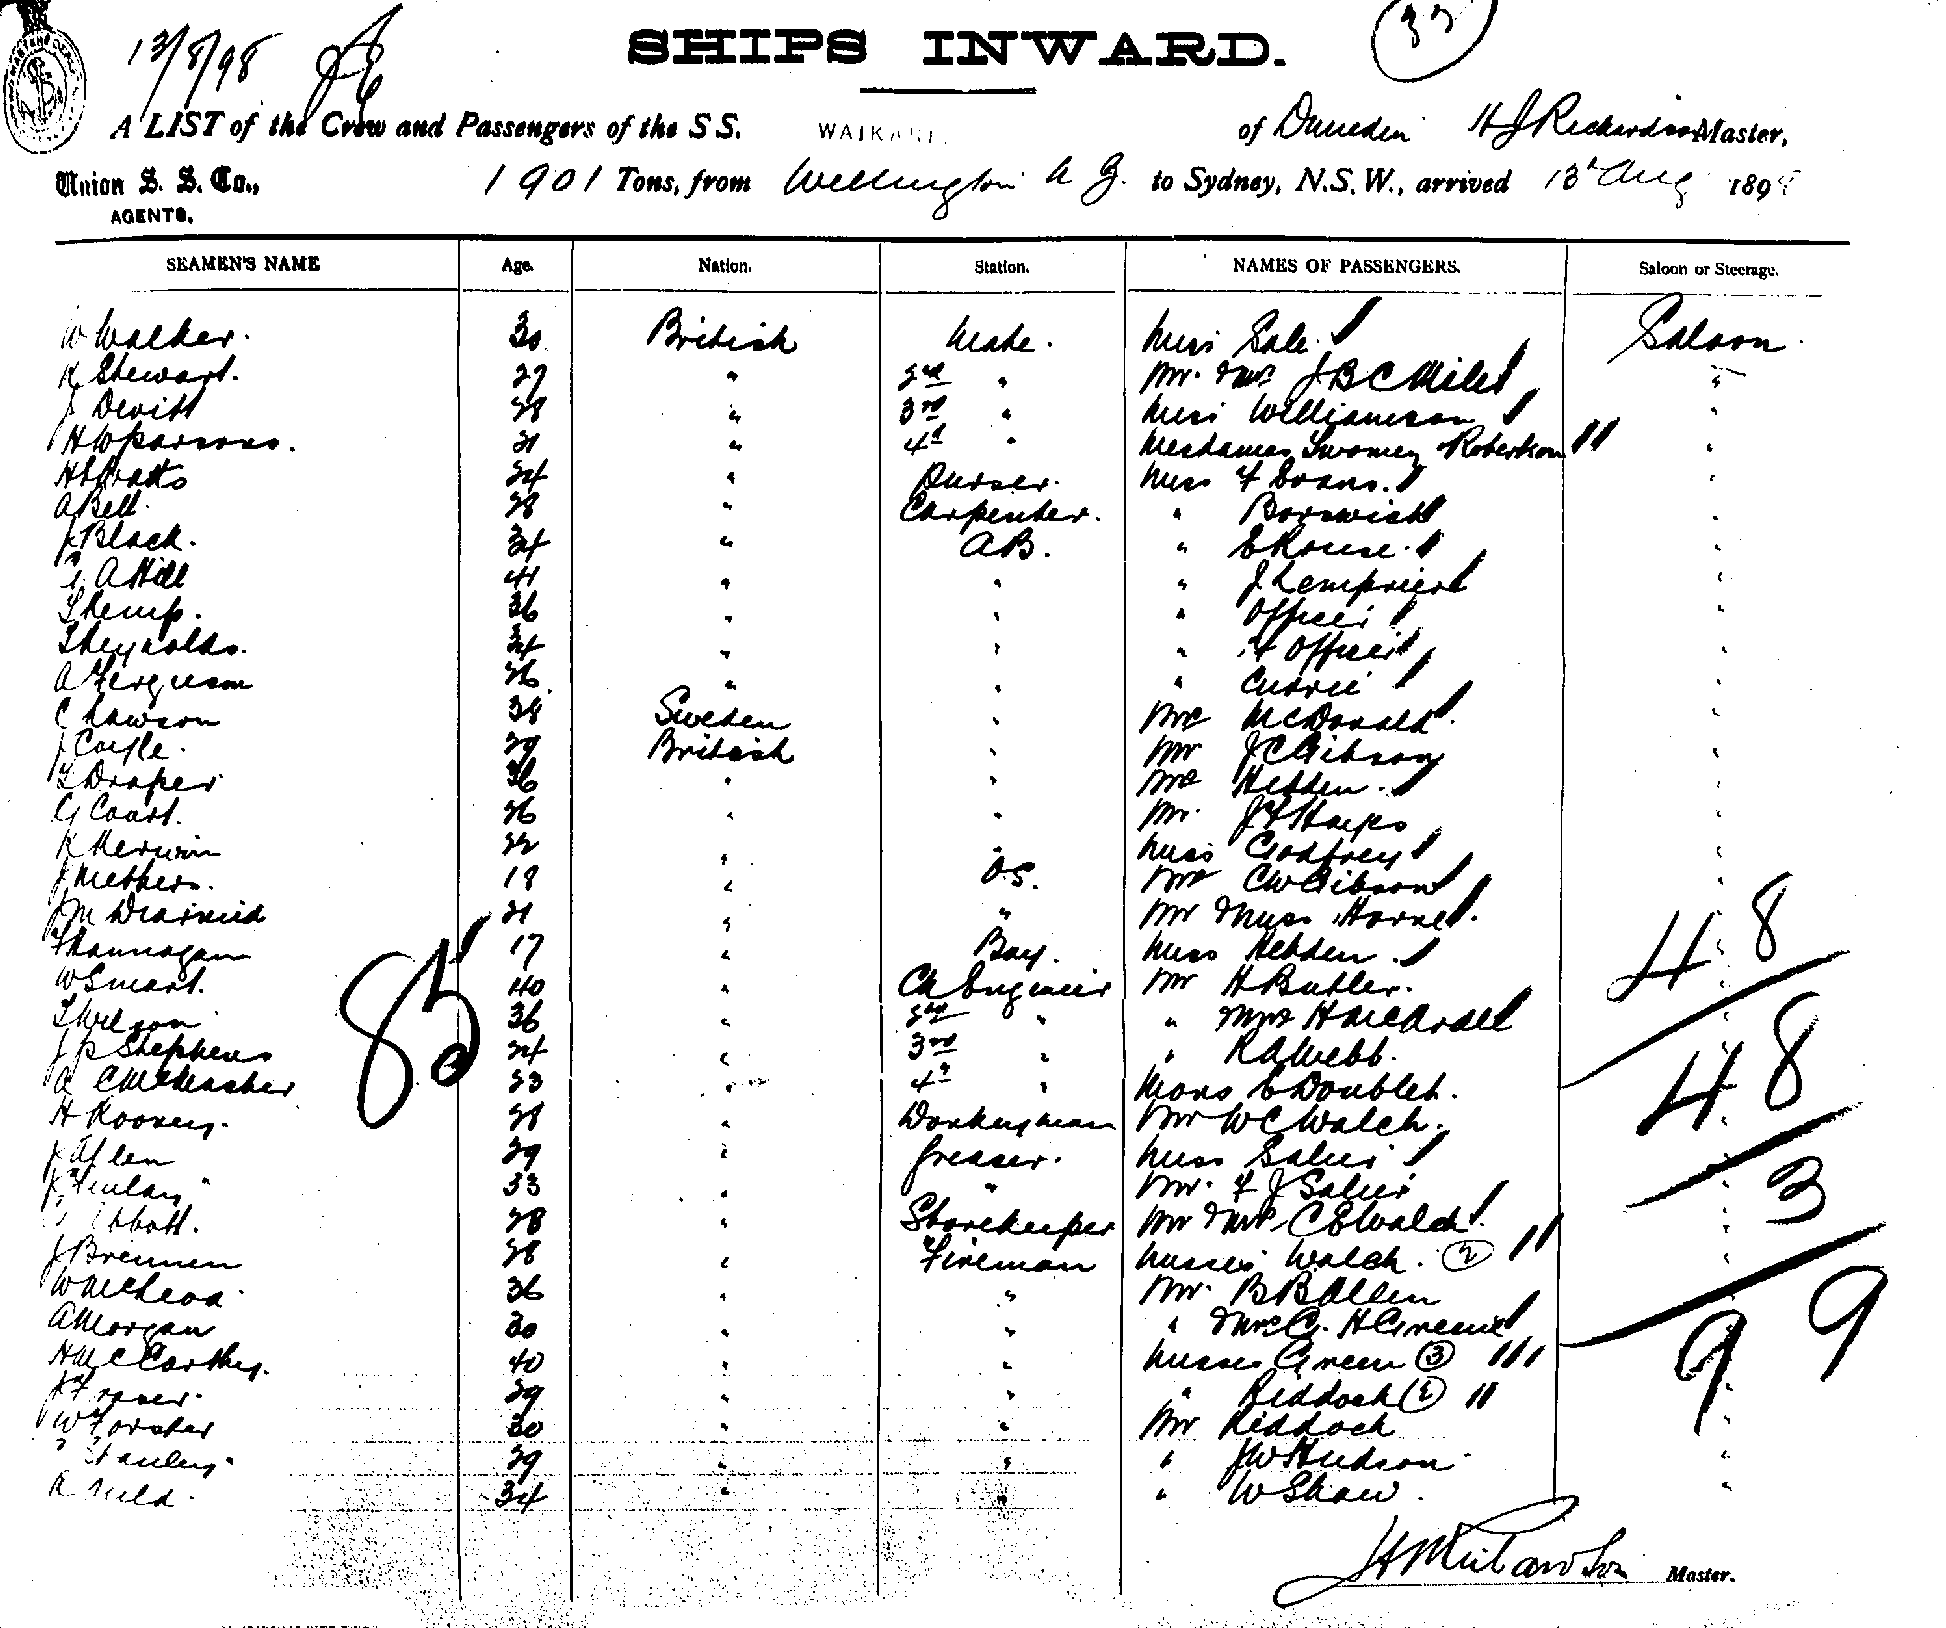 13/8/98
33
SHIPS INWARD.
A LIST of the Crew and Passengers of the S S. WAIKARE. of Dunedin H J Richardson Master,
Union S. S. Co.,
AGENTS.
1901 Tons, from Wellington N Z. to Sydney, N.S.W., arrived 13th Aug 1898
SEAMEN'S NAME Age. Nation. Station. NAMES OF PASSENGERS. Saloon or Steerage.
W Walker. 30 British Mate. Miss Sale. Saloon.
K Stewart. 27 " 2nd " Mr. Mrs J B C Miles "
J Devitt 28 " 3rd " Miss Williamson "
H W Parsons. 31 " 4th " Mesdames Twomey Robertson "
24 " Purser. Miss F Evans. "
A Bell. 28 " Carpenter. " Borswick "
J Black. 34 " AB. " E Rouse. "
A Hill 41 " " " J Lempriere "
T Kemp. 36 " " " Officer "
T Reynolds. 34 " " " F Officer "
A Ferguson 26 " " " Currie "
C Lawson 38 Sweden " Mrs McDonald. "
J Coyle. 29 British " Mr J C Gibson "
T Draper 36 " " Mrs Hebden. "
G Court. 26 " " Mr. J F Hayes "
K Kerwin 22 " " Miss Godfrey "
J Methers. 18 " OS. Mrs C W Gibson "
J McDiarmid 21 " " Mr Miss Horne. "
F Hannagan 17 " Boy. Miss Hebden. "
W Smart. 40 " Ch Engineer Mr H Butler. "
T Wilson 36 " 2nd " " Mrs H McArdell "
J P Stephens 24 " 3rd " " R A Webb. "
A C McEachar 23 " 4th " Mons E Doublet. "
H Rooney. 28 " Donkeyman Mr W C Walch. "
J Allen 29 " Greaser. Miss Salier "
J Finlay 33 " " Mr. F J Salier "
Abbott. 28 " Storekeeper Mr Mrs C E Walch. "
J Brennen 28 " Fireman Misses Walch. 2 "
W McLeod. 36 " " Mr. B B Allen "
A Morgan 30 " " " Mrs G. H Greene "
H McCarthy. 40 " " Misses Green 3 "
J Fraser. 29 " " " Riddoch 2 "
W Forster 30 " " Mr Riddoch "
Stanley. 29 " " " J W Hudson "
A Auld. 34 " " " W Shaw. "
85
48
48
3
99
H J Richardson Master.